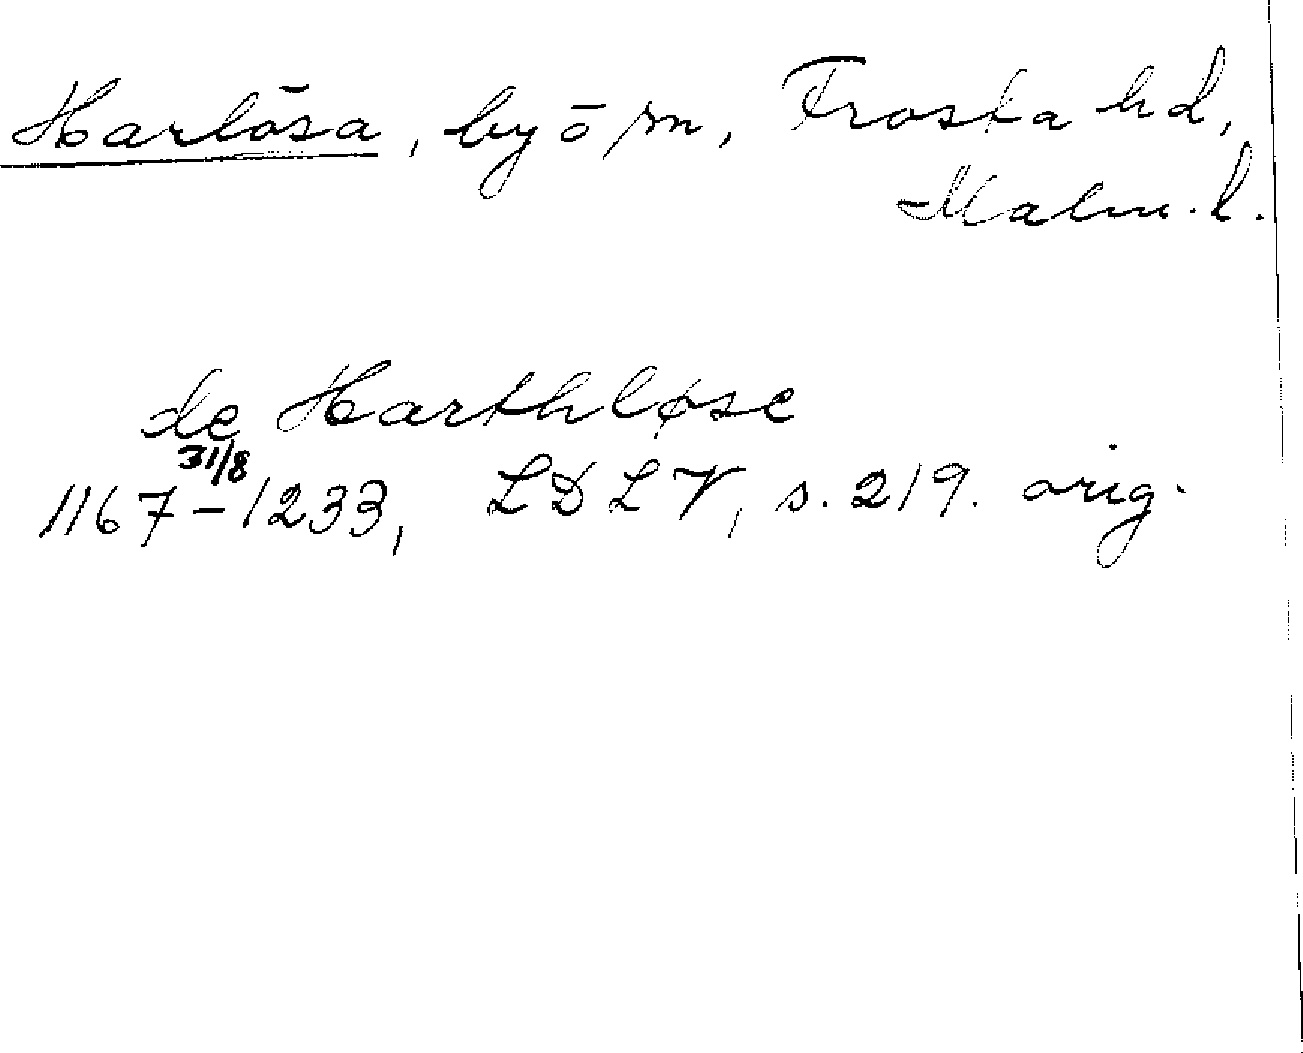 Harlösa, by ō sn, Frosta hd,
Malm. l.
de Harthløse
31/8
1167-1233, LDLV, s. 219. orig.